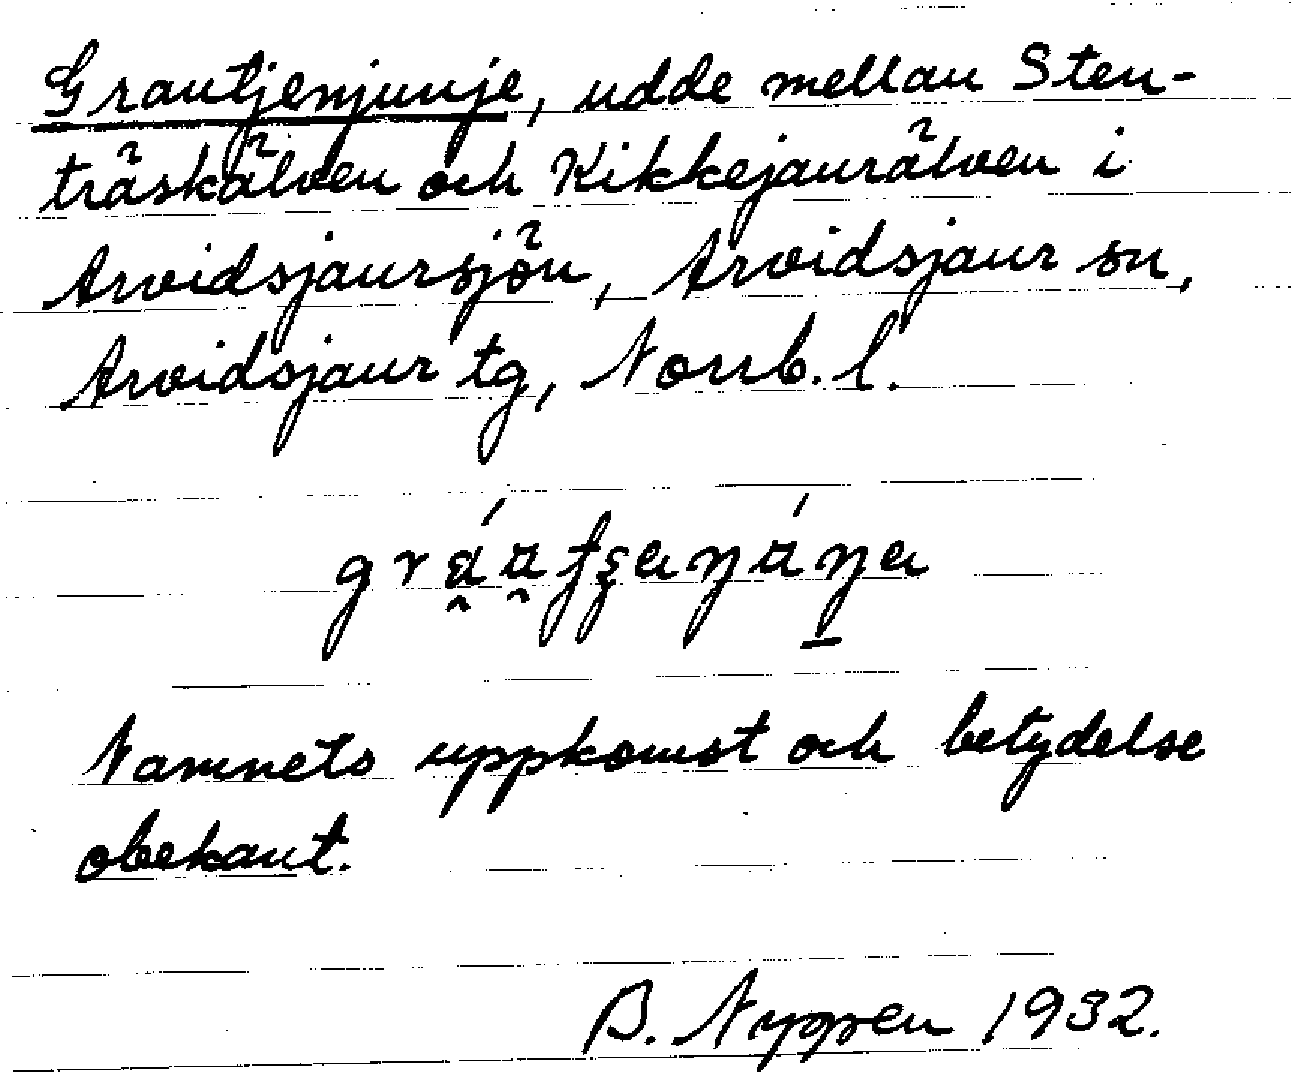 Grautjenjunje, udde mellan Sten-
träskälven och Kikkejaurälven i
Arvidsjaursjön, Arvidsjaur sn,
Arvidsjaur tg, Norrb. l.
Namnets uppkomst och betydelse
obekant.
B. Nyppen 1932.